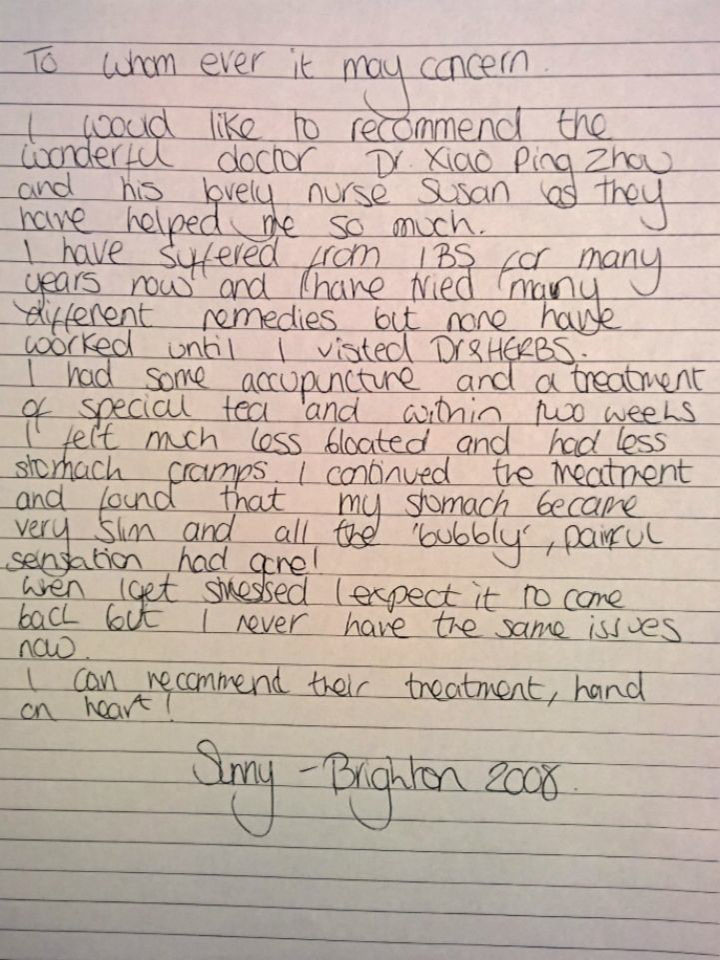 To whom ever it may concern.
I would like to recommend the
wonderful doctor Dr. Xiao Ping Zhou
and his lovely nurse Susan as they
have helped me so much.
I have suffered from IBS for many
years now and I have tried many
different remedies but none have
worked until I visted Dr & HERBS.
I had some accupuncture and a treatment
of special tea and within two weeks
I felt much less bloated and had less
stomach cramps. I continued the treatment
and found that my stomach became
very slim and all the 'bubbly', painful
sensation had gone!
When I get stressed I expect it to come
back but I never have the same issues
now.
I can recommend their treatment, hand
on heart!
– Brighton 2008.